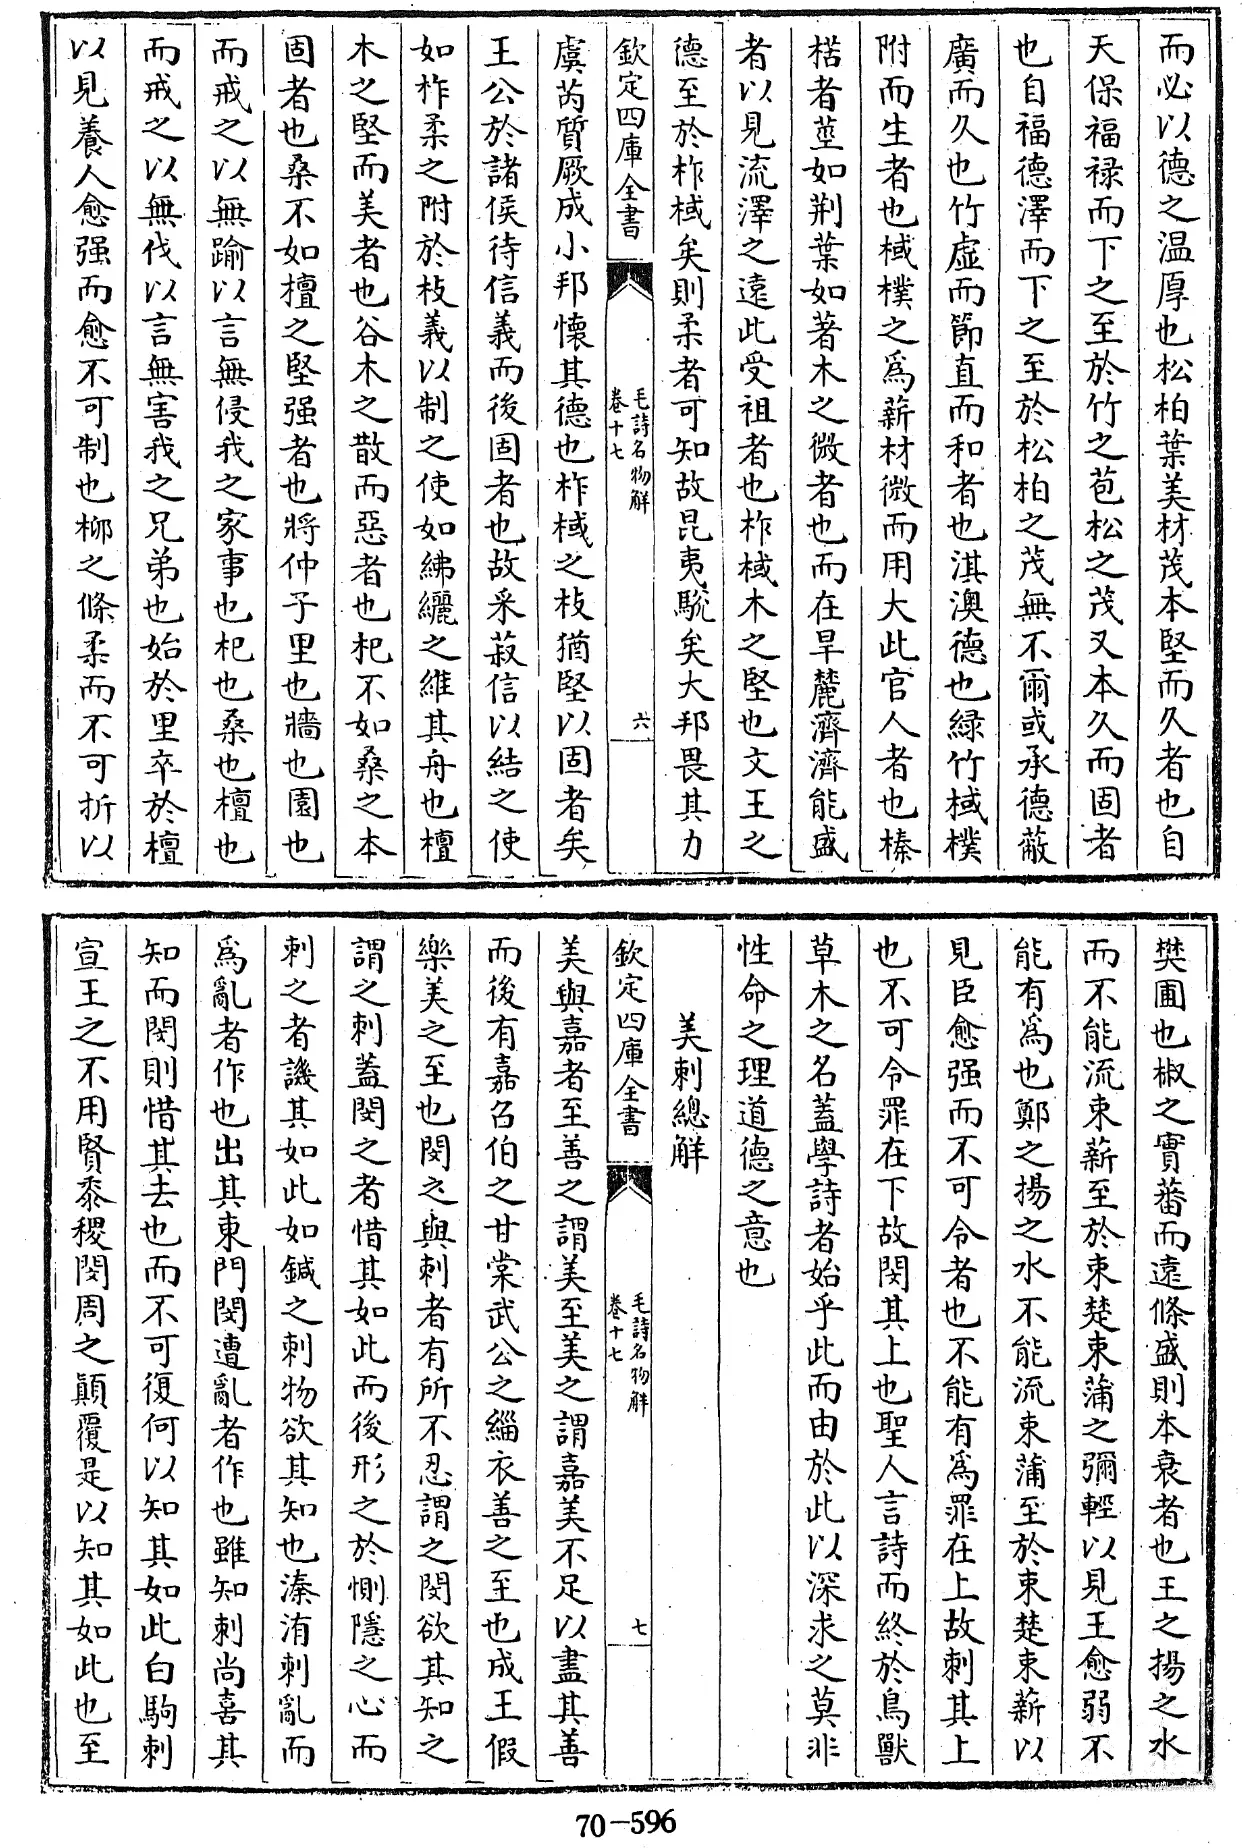 而必以德之温厚也松柏葉美材茂本堅而久者也自
天保福禄而下之至於竹之苞松之茂又本久而固者
也自福德澤而下之至於松柏之茂無不爾或承德蔽
廣而久也竹虛而節直而和者也淇澳德也緑竹棫樸
附而生者也棫樸之為薪材微而用大此官人者也榛
楛者莖如荆葉如蓍木之微者也而在旱麓濟濟能盛
者以見流澤之遠此受祖者也柞棫木之堅也文王之
德至於柞棫矣則柔者可知故昆夷駾矣大邦畏其力
欽定四庫全書
毛詩名物解
卷十七
六
虞芮質厥成小邦懷其德也柞棫之枝猶堅以固者矣
王公於諸侯待信義而後固者也故采菽信以結之使
如柞柔之附於枝義以制之使如紼纚之維其舟也檀
木之堅而美者也谷木之散而惡者也杞不如桑之本
固者也桑不如檀之堅强者也將仲子里也牆也園也
而戒之以無踰以言無侵我之家事也杞也桑也檀也
而戒之以無伐以言無害我之兄弟也始於里卒於檀
以見養人愈强而愈不可制也柳之條柔而不可折以
樊圃也椒之實蕃而遠條盛則本衰者也王之揚之水
而不能流束薪至於束楚束蒲之彌輕以見王愈弱不
能有為也鄭之揚之水不能流束蒲至於束楚束薪以
見臣愈强而不可令者也不能有為罪在上故刺其上
也不可令罪在下故閔其上也聖人言詩而終於鳥獸
草木之名蓋學詩者始乎此而由於此以深求之莫非
性命之理道德之意也
美刺總解
欽定四庫全書
毛詩名物解
卷十七
七
美與嘉者至善之謂美至美之謂嘉美不足以盡其善
而後有嘉召伯之甘棠武公之緇衣善之至也成王假
樂美之至也閔之與刺者有所不忍謂之閔欲其知之
謂之刺蓋閔之者惜其如此而後形之於惻隱之心而
刺之者譏其如此如鍼之刺物欲其知也溱洧刺亂而
為亂者作也出其東門閔遭亂者作也雖知刺尚喜其
知而閔則惜其去也而不可復何以知其如此白駒刺
宣王之不用賢黍稷閔周之顛覆是以知其如此也至
70-596